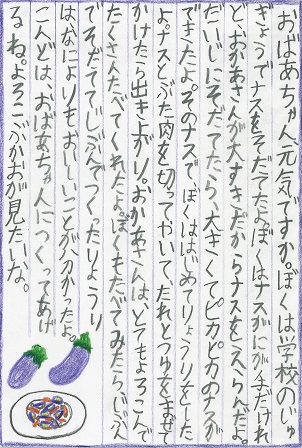 おばあちゃん、元気ですか。ぼくは学校のじゅ
ぎょうでナスをそだてたよ。ぼくはナスがにが手だけれ
ど、おかあさんが大すきだからナスをえらんだよ。
だいじにそだてたら、大きくてピカピカのナスが
できたよ。そのナスで、ぼくははじめてりょうりをした
よ。ナスとぶた肉を切ってやいてたれとつゆをまぜて
かけたら出き上がり。おかあさんは、とてもよろこんで
たくさんたべてくれたよ。ぼくもたべてみたらじぶん
でそだててじぶんでつくったりょうり
はなによりもおいしいことが分かったよ。
こんどは、おばあちゃんにつくってあげ
るね。よろこぶかおが見たいな。